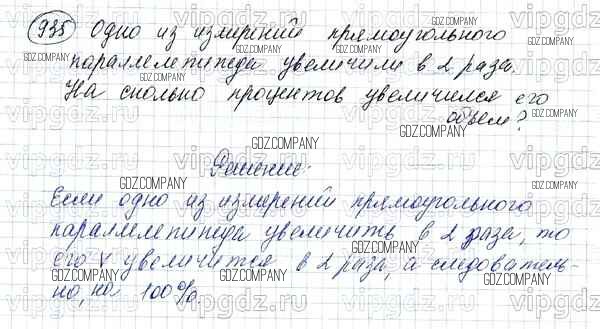 935 Одно из измерений прямоугольного
параллелепипеда увеличили в 2 раза.
На сколько процентов увеличился его
объем?
Решение:
Если одно из измерений прямоугольного
параллелепипеда увеличить в 2 раза, то
его V увеличится в 2 раза, а следователь-
но, на 100%.